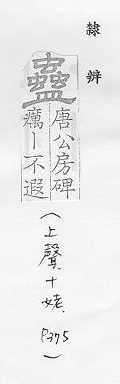 隸辨
蠱
唐公房碑
癘丨不遐
（上聲，十姥，P375）